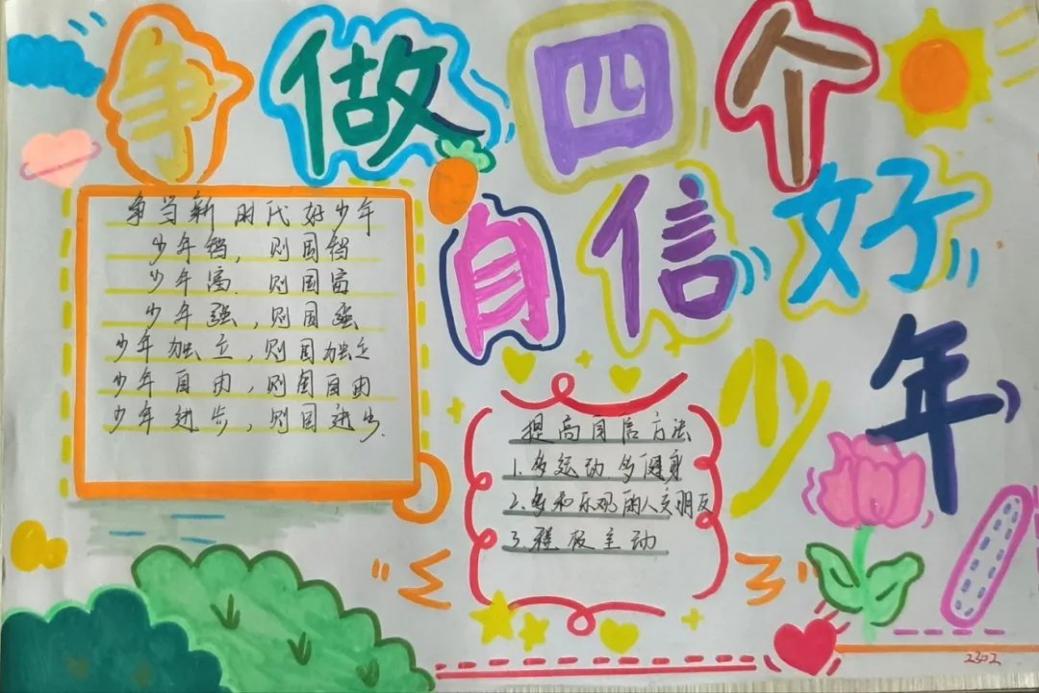 争做四个
自信好
少年
争当新时代好少年
少年智，则国智
少年富，则国富
少年强，则国强
少年独立，则国独立
少年自由，则国自由
少年进步，则国进步.
提高自信方法
1.多运动多健身
2.多和乐观的人交朋友
3.积极主动
2302